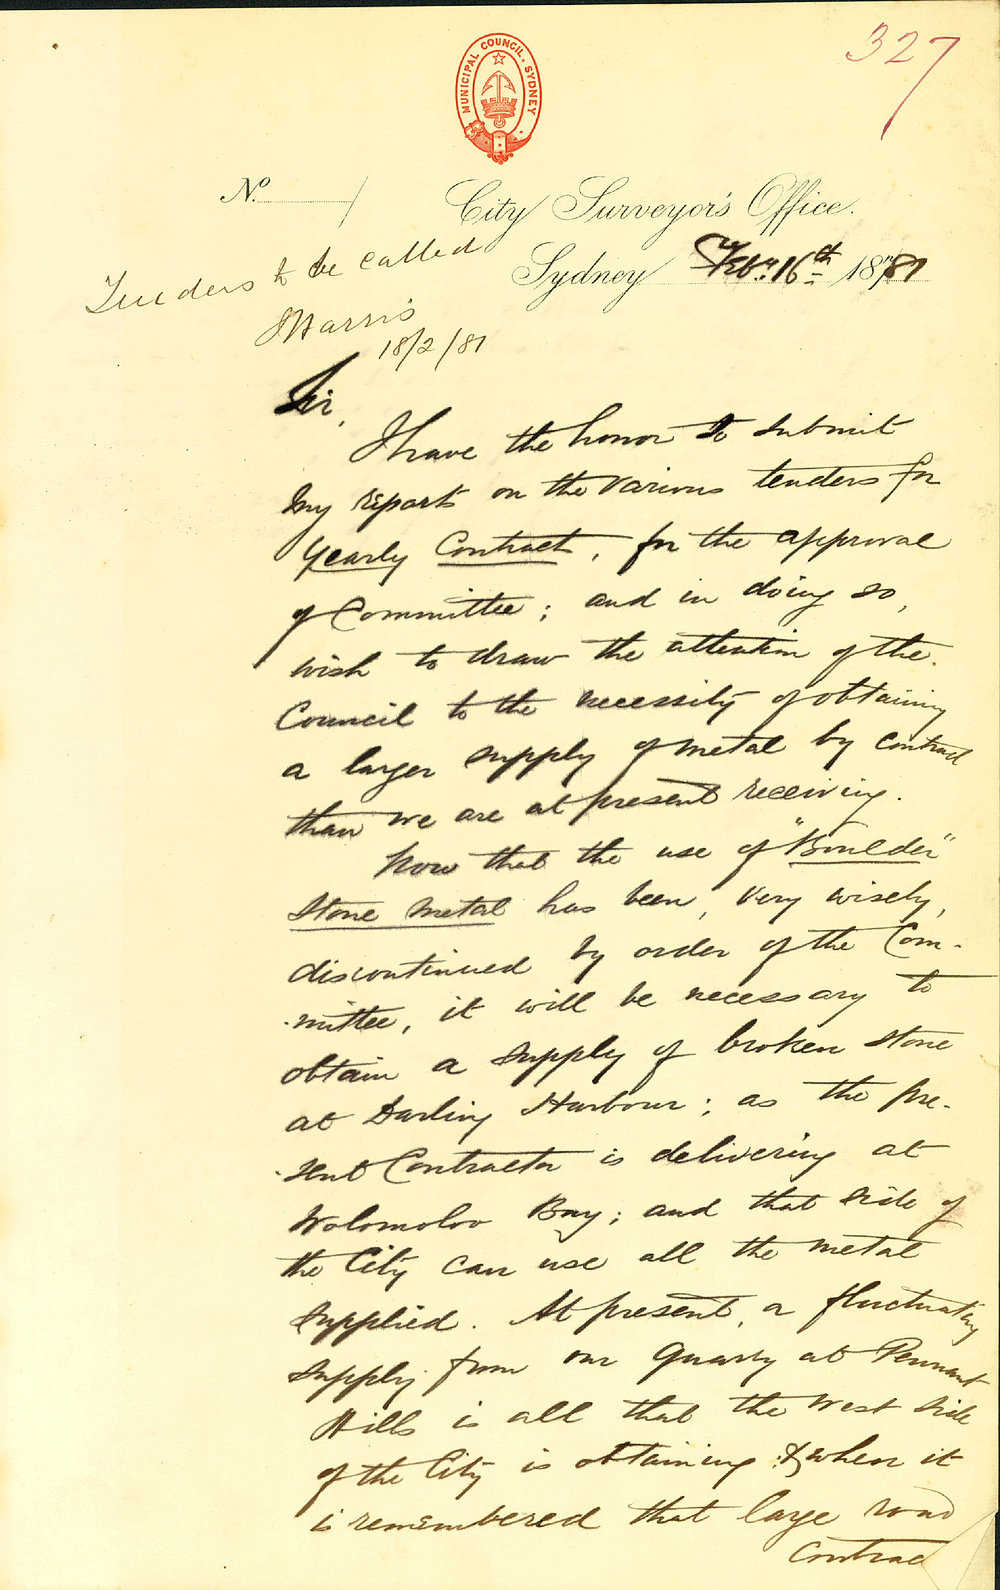 327
MUNICIPAL COUNCIL. SYDNEY
No. /
City Surveyor's Office.
Sydney Feby. 16th 1881
Tenders to be called
J Harris
18/2/81
Sir,
I have the honor to submit
my report on the various tenders for
Yearly Contract, for the approval
of Committee; and in doing so,
wish to draw the attention of the
Council to the necessity of obtaining
a larger supply of metal by contract
than we are at present receiving.
Now that the use of "Boulder"
Stone metal has been, very wisely,
discontinued by order of the Com-
-mittee, it will be necessary to
obtain a supply of broken stone
at Darling Harbour; as the pre-
-sent Contractor is delivering at
Wolomoloo Bay; and that side of
the City can use all the metal
supplied. At present, a fluctuating
supply from our Quarry at Pennant
Hills is all that the West side
of the City is obtaining; & when it
is remembered that large road
contrac